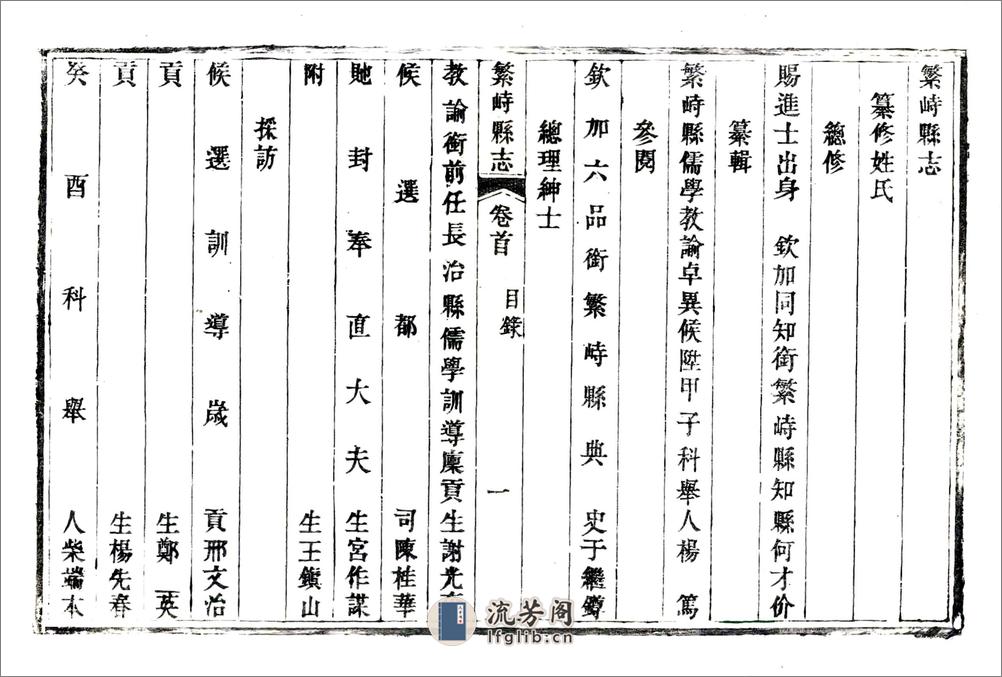 繁峙縣志
纂修姓氏
總修
賜進士出身 欽加同知銜繁峙縣知縣何才价
纂輯
繁峙縣儒學教諭卓異候陞甲子科舉人楊 篤
參閱
欽加六品銜繁峙縣典 史于繼
總理紳士
繁峙縣志 卷首 目錄 一
教諭銜前任長治縣儒學訓導廩貢生謝光
候選都 司陳桂華
馳封奉直大夫 生宮作謀
附 生王鎮山
採訪
候選訓導歲 貢邢文治
貢 生鄭 英
貢 生楊先春
癸酉科舉 人柴端本
流芳阁
lfglib.com